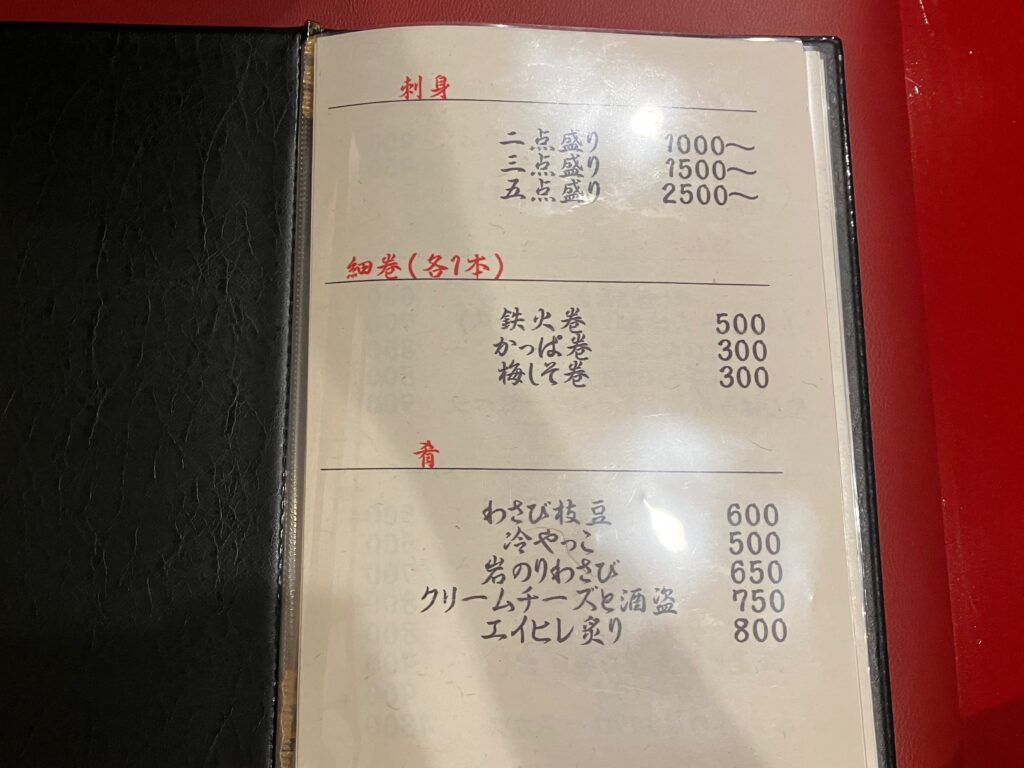 刺身
二点盛り 1000〜
三点盛り 1500〜
五点盛り 2500〜
細巻(各1本)
鉄火巻 500
かっぱ巻 300
梅しそ巻 300
肴
わさび枝豆 600
冷やっこ 500
岩のりわさび 650
クリームチーズと酒盗 750
エイヒレ炙り 800